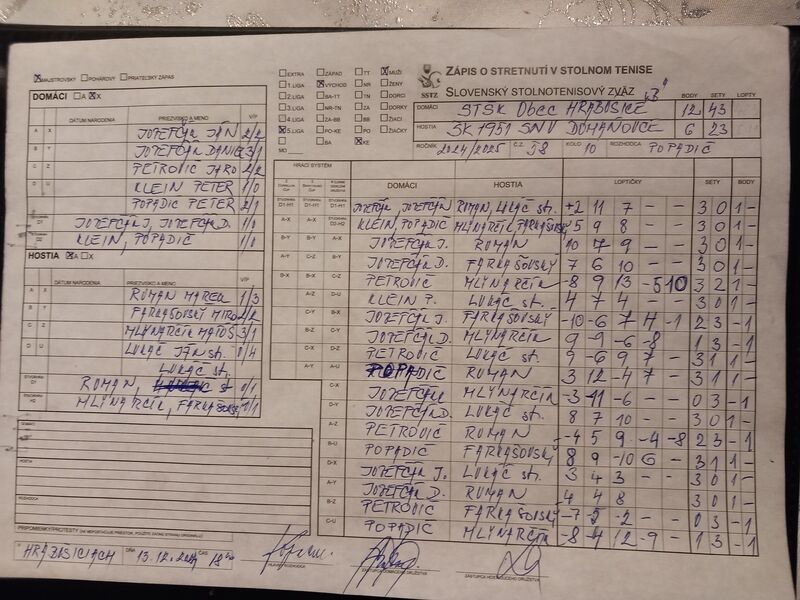 MAJSTROVSKÝ POHÁROVÝ PRIATEĽSKÝ ZÁPAS
DOMÁCI A X
DÁTUM NARODENIA PRIEZVISKO A MENO V/P
A X JOZEFČÁK JÁN 2/2
B Y JOZEFČÁK DANIEL 3/1
C Z PETROVIČ JARO 2/2
D U KLEIN PETER 1/0
POPADIČ PETER 2/1
D1 JOZEFČÁK J, JOZEFČÁK D. 1/0
D2 KLEIN, POPADIČ 1/0
HOSTIA A X
DÁTUM NARODENIA PRIEZVISKO A MENO V/P
A X ROMAN MAREK 1/3
B Y FARKAŠOVSKÝ MIRO 2/2
C Z MLYNARČÍK MATÚŠ 3/1
D U LUKÁČ JÁN st. 0/4
LUKÁČ st.
D1 ROMAN, st 0/1
MLYNARČÍK, FARKAŠOVSKÝ 0/1
DOMÁCI
HOSTIA
ROZHODCA
PRIPOMIENKY/PROTESTY
HRABUŠICIACH DŇA 13.12.2024 ČAS 18
HLAVNÝ ROZHODCA
ZÁSTUPCA DOMÁCEHO DRUŽSTVA
ZÁSTUPCA HOSŤUJÚCEHO DRUŽSTVA
EXTRA ZÁPAD TT MUŽI
1. LIGA VÝCHOD NR ŽENY
2. LIGA BA-TT TN DORCI
3. LIGA NR-TN ZA DORKY
4. LIGA ZA-BB BB ŽIACI
5. LIGA PO-KE PO ŽIAČKY
MO BA KE
SSTZ
ZÁPIS O STRETNUTÍ V STOLNOM TENISE
SLOVENSKÝ STOLNOTENISOVÝ ZVÄZ "B"
BODY SETY LOPTY
DOMÁCI STSK Obec HRABUŠICE 12 43
HOSTIA SK 1951 SNV DOMAŇOVCE 6 23
ROČNÍK 2024/2025 Č.Z. 58 KOLO 10 ROZHODCA POPADIČ
HRACÍ SYSTÉM
DOMÁCI HOSTIA LOPTIČKY SETY BODY
D1-H1 D1-H1 D1-H1 JOZEFČÁK, JOZEFČÁK ROMAN, LUKÁČ st. +2 11 7 - - 3 0 1 -
A-X A-X D2-H2 KLEIN, POPADIČ MLYNARČÍK, FARKAŠOVSKÝ 5 9 8 - - 3 0 1 -
B-Y B-Y A-X JOZEFČÁK J. ROMAN 10 7 9 - - 3 0 1 -
A-Y C-Z B-Y JOZEFČÁK D. FARKAŠOVSKÝ 7 6 10 - - 3 0 1 -
B-X A-X C-Z PETROVIČ MLYNARČÍK -8 9 13 -5 10 3 2 1 -
A-Z D-U KLEIN P. LUKÁČ st. 4 7 4 - - 3 0 1 -
C-Y JOZEFČÁK J. FARKAŠOVSKÝ -10 -6 7 4 -1 2 3 - 1
B-Z JOZEFČÁK D. MLYNARČÍK 9 -9 -6 -8 1 3 - 1
C-Y PETROVIČ LUKÁČ st. 9 -6 9 7 - 3 1 1 -
A-Y A-U POPADIČ ROMAN 3 12 -4 7 - 3 1 1 -
C-X JOZEFČÁK MLYNARČÍK -3 -11 -6 - - 0 3 - 1
D-Y JOZEFČÁK D. LUKÁČ st. 8 7 10 - - 3 0 1 -
A-Z PETROVIČ ROMAN -4 5 9 -4 -8 2 3 - 1
B-U POPADIČ FARKAŠOVSKÝ 8 9 -10 6 - 3 1 1 -
D-X JOZEFČÁK J. LUKÁČ st. 3 4 3 - - 3 0 1 -
A-Y JOZEFČÁK D. ROMAN 4 4 8 3 0 1 -
B-Z PETROVIČ FARKAŠOVSKÝ -7 -5 -2 - - 0 3 - 1
C-U POPADIČ MLYNARČÍK -8 -4 12 -9 - 1 3 - 1